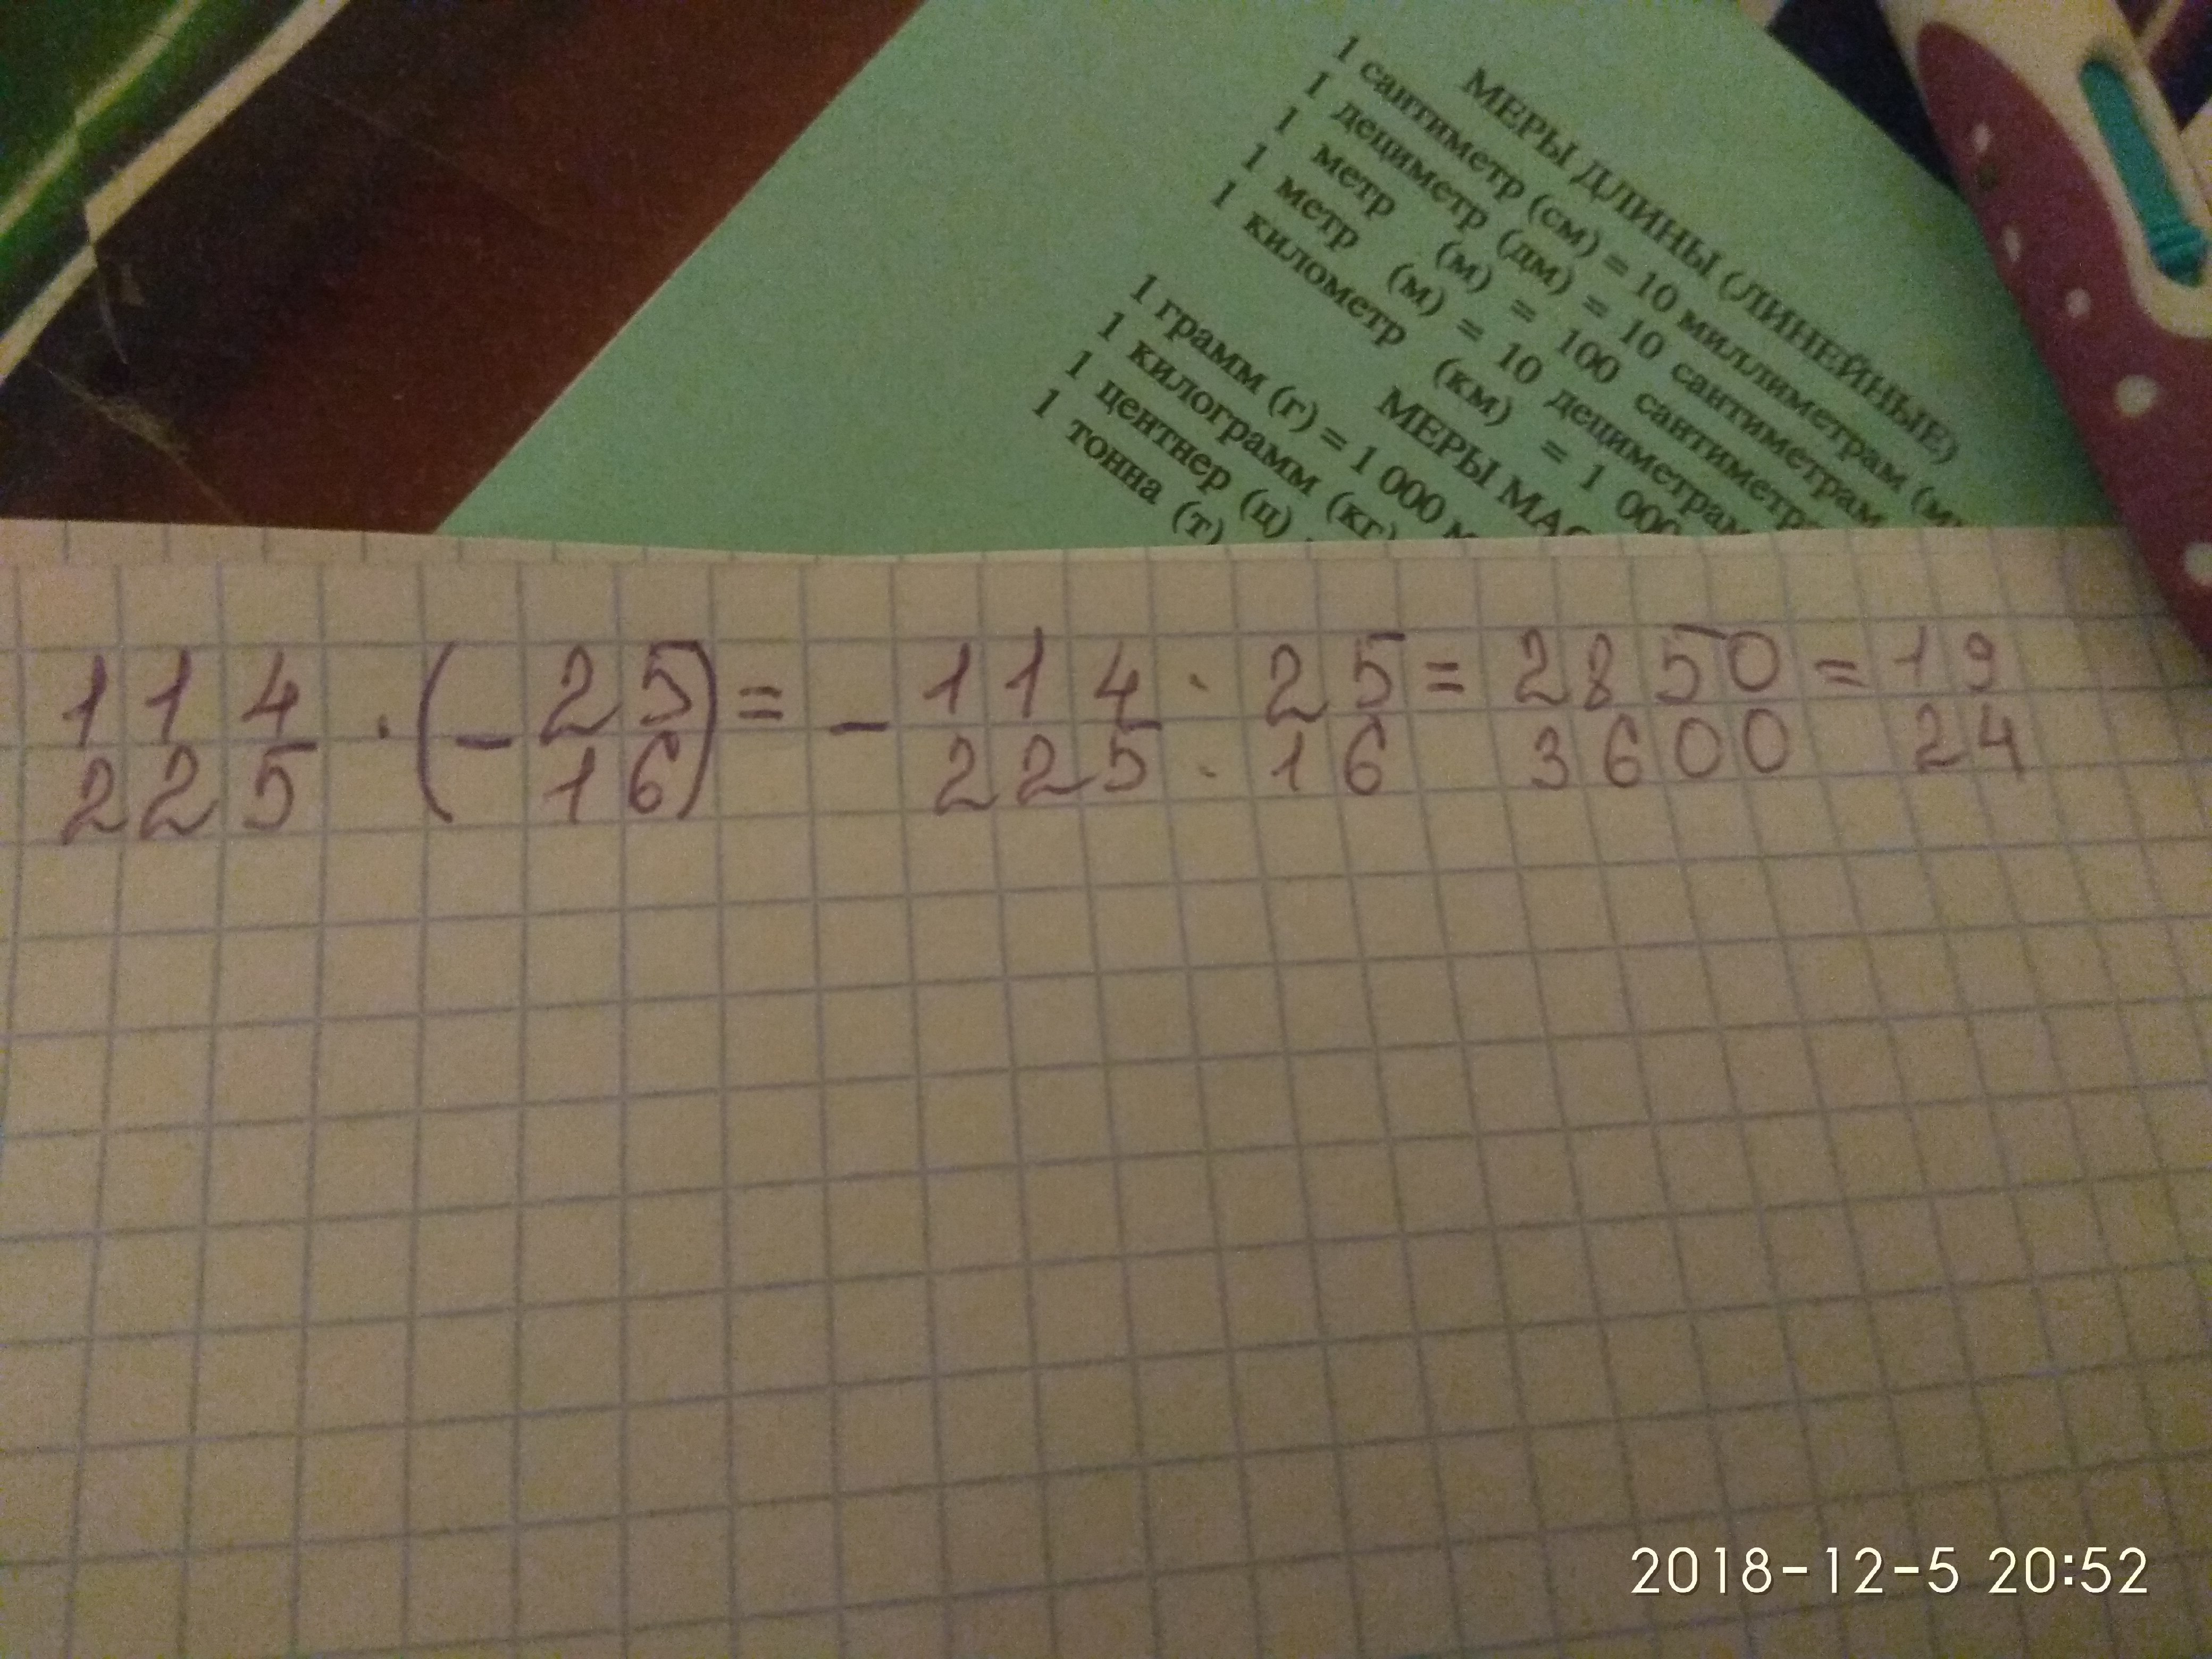 МЕРЫ ДЛИНЫ (ЛИНЕЙНЫЕ)
1 сантиметр (см) = 10 миллиметрам
1 дециметр (дм) = 10 сантиметрам
1 метр (м) = 100 сантиметрам
1 метр (м) = 10 дециметрам
1 километр (км) = 1 000
МЕРЫ
1 грамм (г) = 1 000
1 килограмм (кг)
1 центнер (ц)
1 тонна (т)
114 · (- 25) = - 114 · 25 = 2850 = 19
225 16 225 · 16 3600 24
2018-12-5 20:52